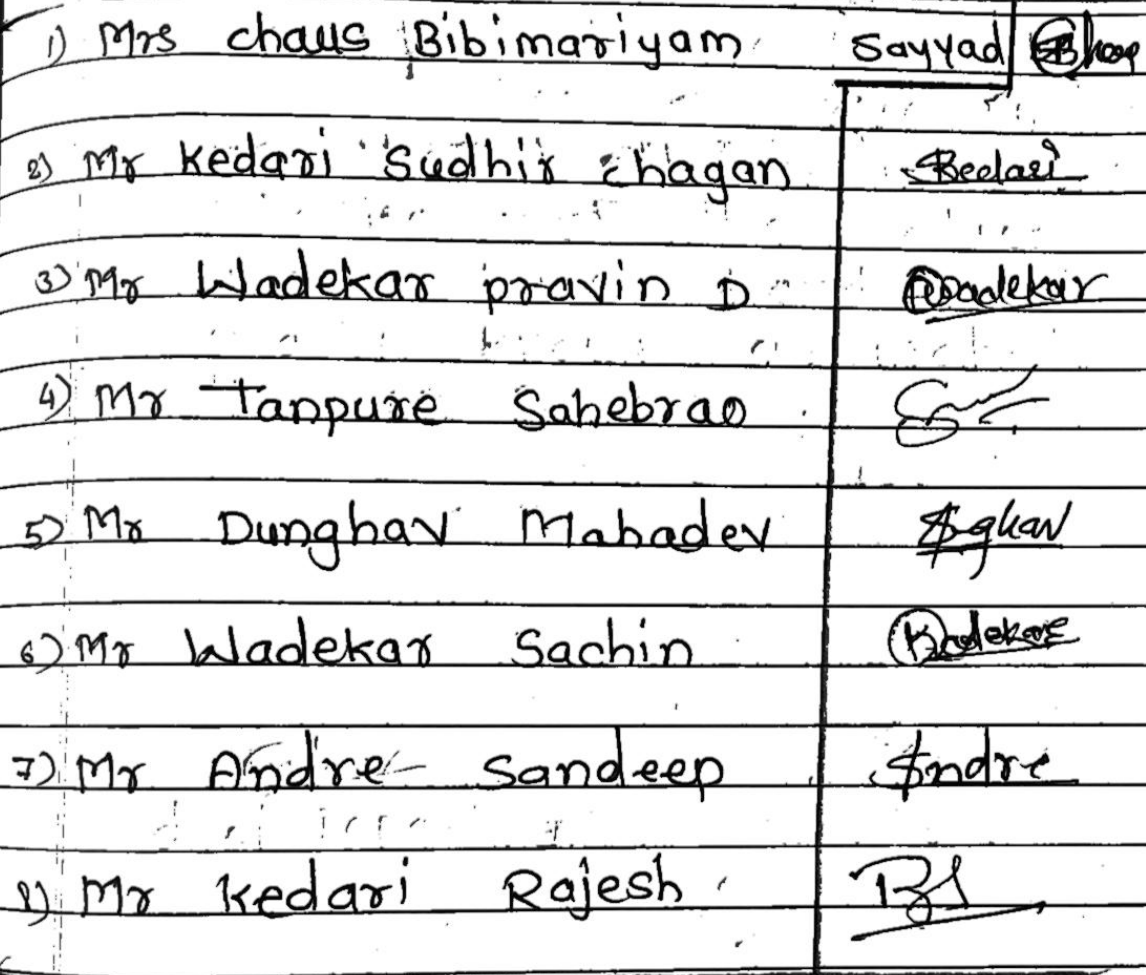 1) Mrs chaus Bibimariyam Sayyad
2) Mr Kedari Sudhir chagan Kedari
3) Mr Wadekar pravin D Wadekar
4) Mr Tanpure Sahebrao
5) Mr Dunghav Mahadev
6) Mr Wadekar Sachin Wadekar
7) Mr Andre Sandeep Andre
8) Mr Kedari Rajesh